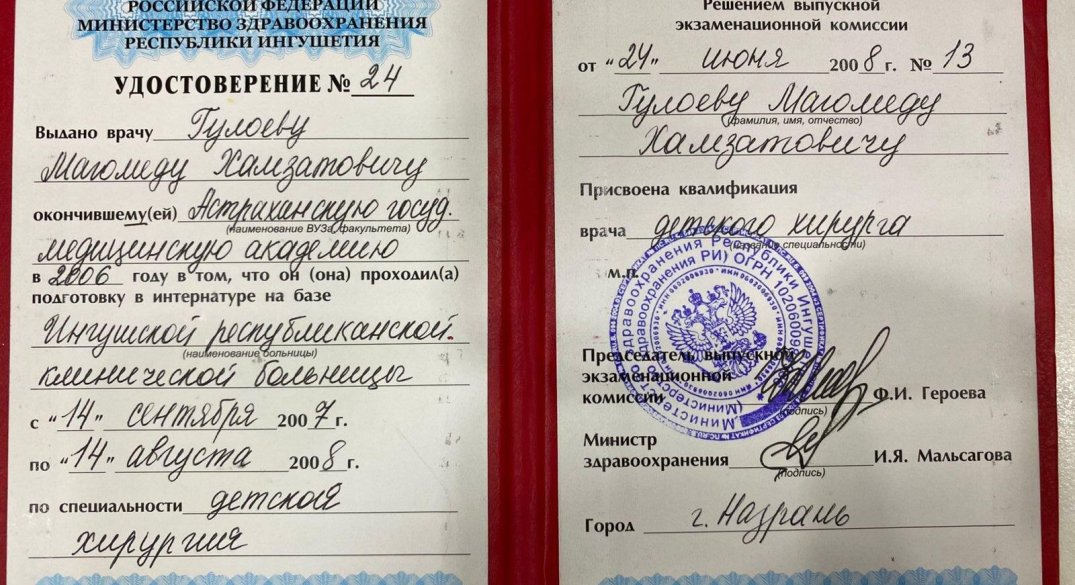 РОССИЙСКОЙ ФЕДЕРАЦИИ
МИНИСТЕРСТВО ЗДРАВООХРАНЕНИЯ
РЕСПУБЛИКИ ИНГУШЕТИЯ
УДОСТОВЕРЕНИЕ № 24
Выдано врачу Гулоеву
Магомеду Хамзатовичу
окончившему(ей) Астраханскую госуд.
(наименование ВУЗа, факультета)
медицинскую академию
в 2006 году в том, что он (она) проходил(а)
подготовку в интернатуре на базе
Ингушской республиканской
(наименование больницы)
клинической больницы
с "14" сентября 2007 г.
по "14" августа 2008 г.
по специальности детской
хирургия
Решением выпускной
экзаменационной комиссии
от "24" июня 2008 г. № 13
Гулоеву Магомеду
(фамилия, имя, отчество)
Хамзатовичу
Присвоена квалификация
врача детского хирурга
(название специальности)
м.п.
Министерство здравоохранения Республики Ингушетия
(Министерство здравоохранения РИ) ОГРН
ИНН 0602006930
Председатель выпускной
экзаменационной
комиссии Ф.И. Героева
(подпись)
Министр
здравоохранения И.Я. Мальсагова
(подпись)
Город г. Назрань